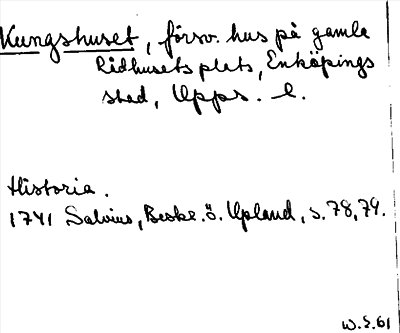 Kungshuset, försv. hus på gamla
Rådhusets plats, Enköpings
stad, Upps. l.
Historia.
1741 Salvius, Beskr. ö. Upland, s. 78, 79.
W.E. 61